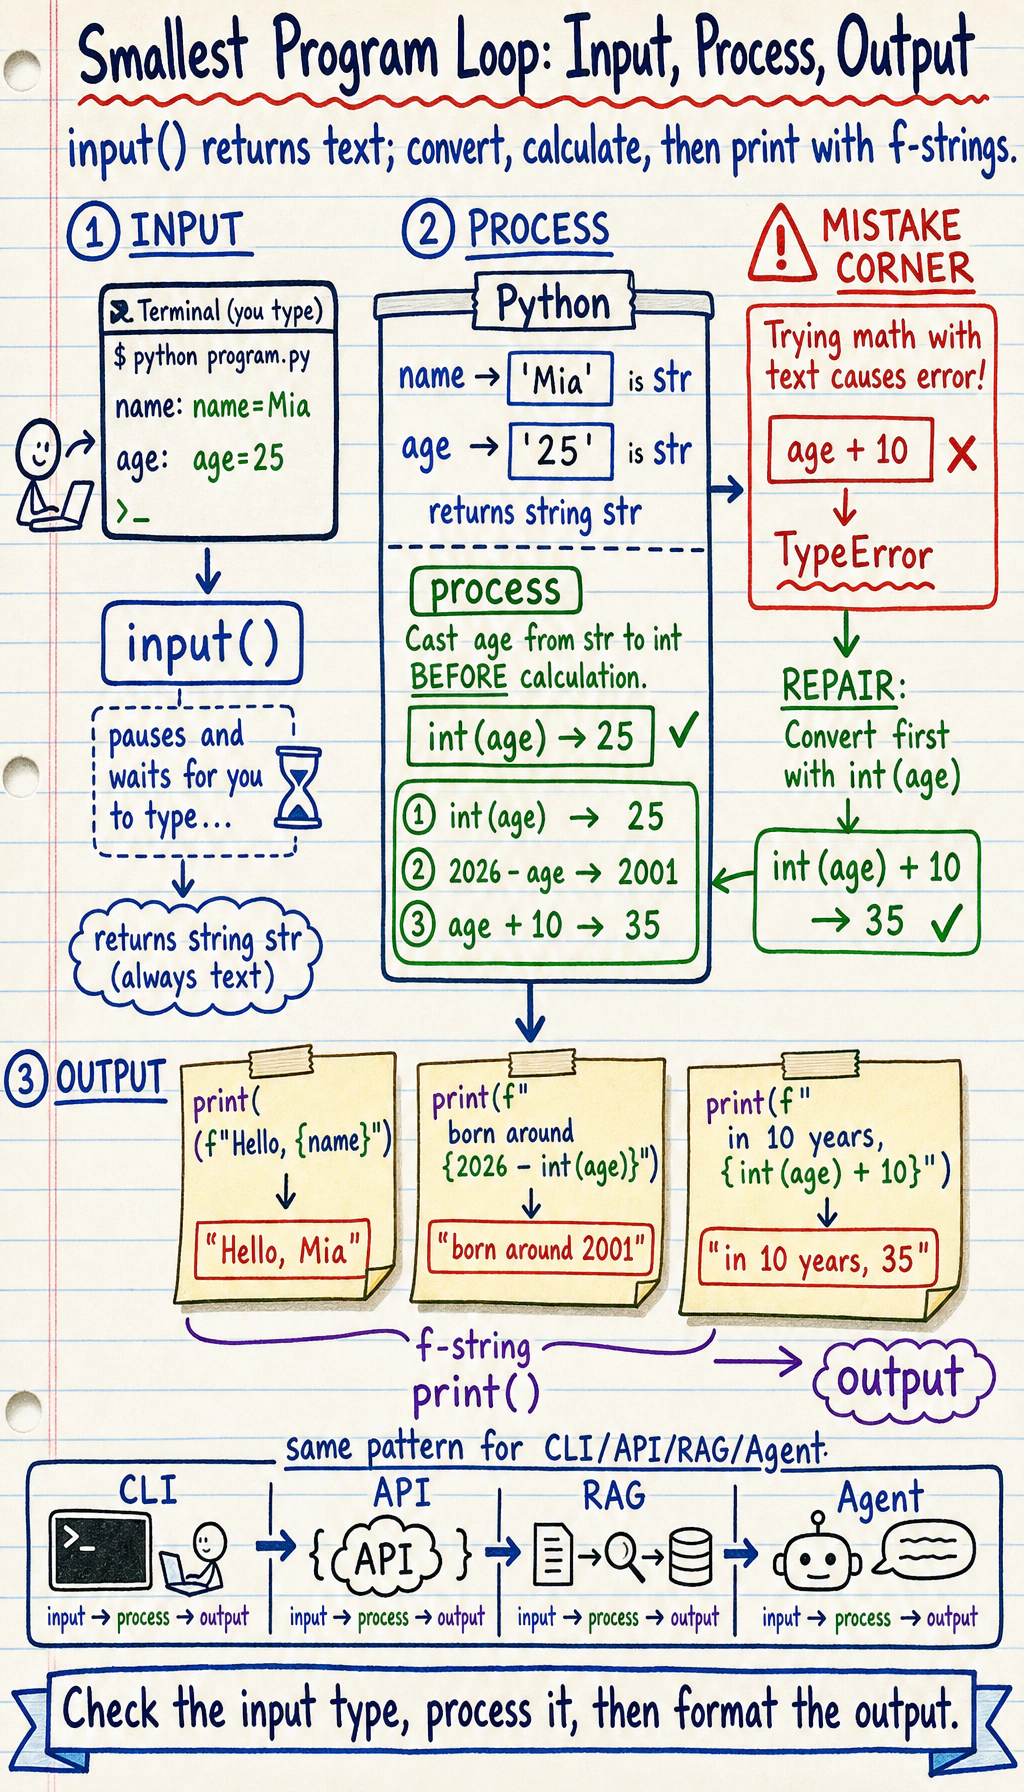 Smallest Program Loop: Input, Process, Output
input() returns text; convert, calculate, then print with f-strings.
1 INPUT
Terminal (you type)
$ python program.py
name: name=Mia
age: age=25
>_
input()
pauses and
waits for you
to type...
returns string str
(always text)
2 PROCESS
Python
name → 'Mia' is str
age → '25' is str
returns string str
process
Cast age from str to int
BEFORE calculation.
int(age) → 25 ✓
1 int(age) → 25
2 2026 - age → 2001
3 age + 10 → 35
MISTAKE
CORNER
Trying math with
text causes error!
age + 10 X
TypeError
REPAIR:
Convert first
with int(age)
int(age) + 10
→ 35 ✓
3 OUTPUT
print(
(f"Hello, {name}")
"Hello, Mia"
print(f"
born around
{2026 - int(age)}")
"born around 2001"
print(f"
in 10 years,
{int(age) + 10}")
"in 10 years, 35"
f-string
print()
output
same pattern for CLI/API/RAG/Agent.
CLI
>_
input → process → output
API
{ API }
input → process → output
RAG
input → process → output
Agent
input → process → output
Check the input type, process it, then format the output.